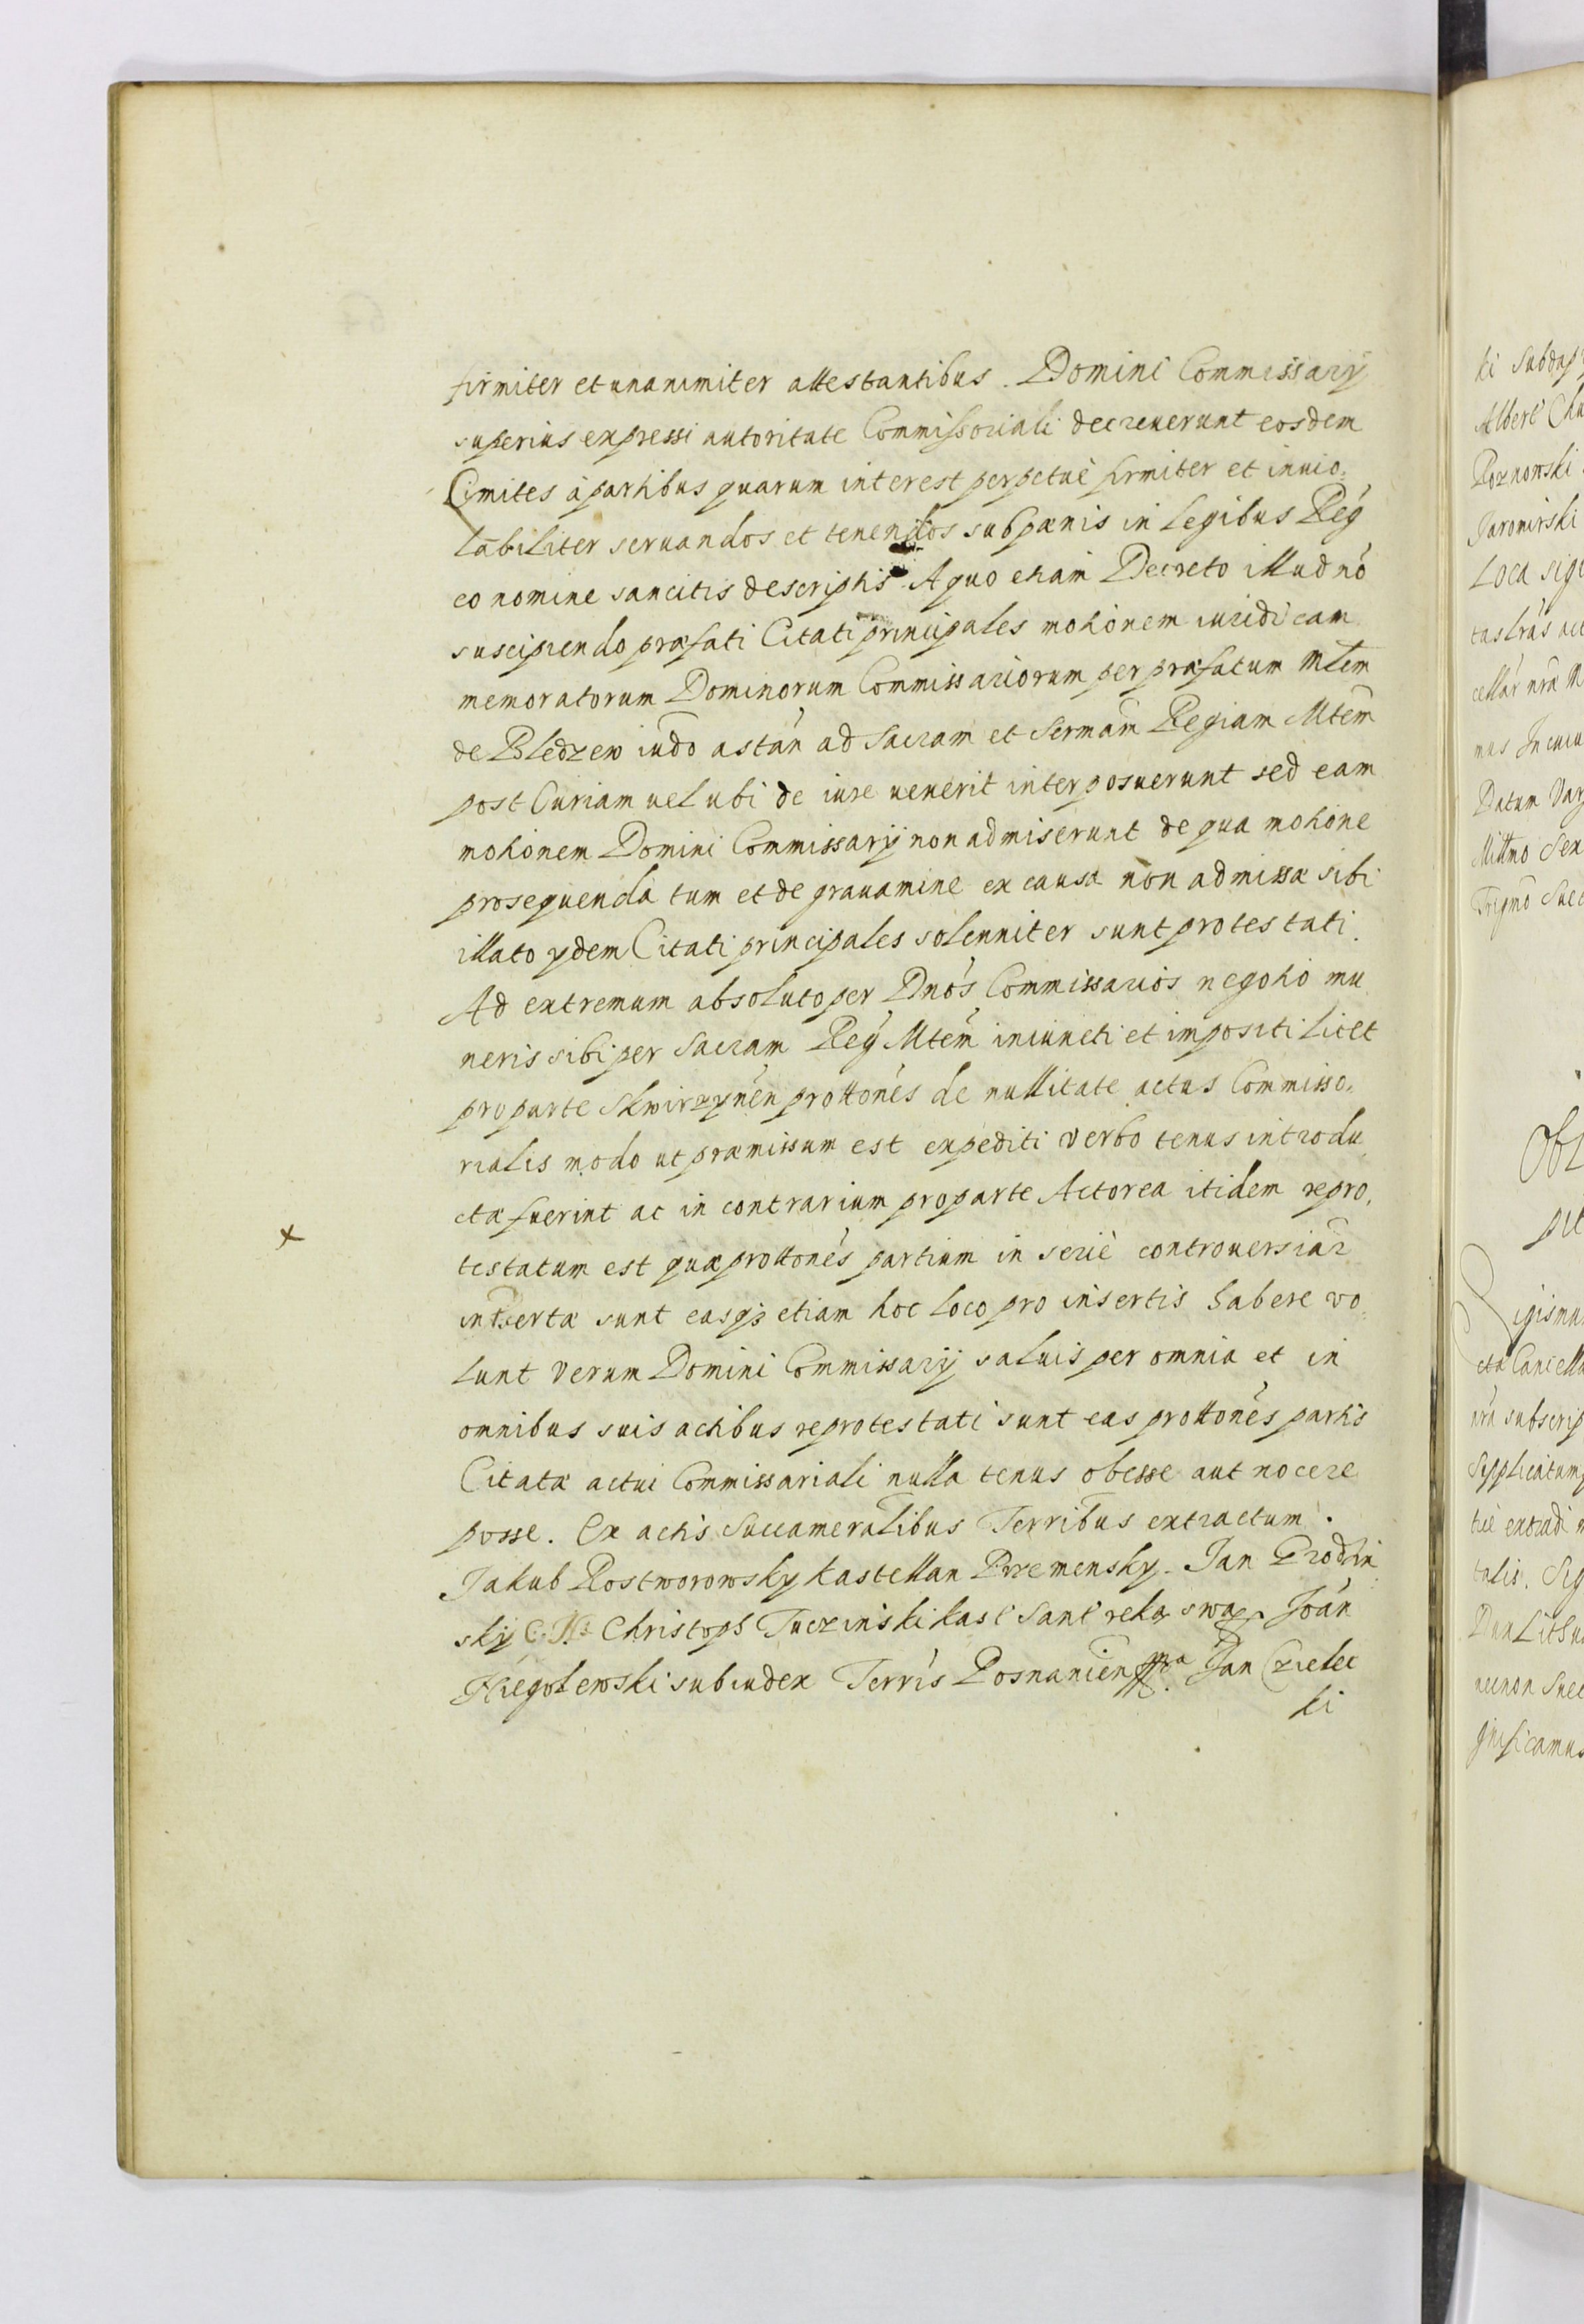 firmiter et unanimiter attestantibus. Domini Commissarij
superius expressi autoritate Commissoriali decreuerunt eosdem
Limites à partibus quarum interest perpetuè firmiter et inuio,
labiliter seruandos et tenendos sub pœnis in legibus Reg
eo nomine sancitis descriptis A quo etiam Decreto illud nō
suscipiendo præfati Citati principales motionem iuridicam
memoratorum Dominorum Commissariorum per præfatum Mtem
de Bledzew iudō astān ad Sacram et Sermām Regiam Mtem̄
post Curiam uel ubi de iure uenerit interposuerunt sed eam
motionem Domini Commissarij non admiserunt de qua motione
prosequenda tum et de grauamine ex causa non admissæ sibi
illato ydem Citati principales solenniter sunt protestati.
Ad extremum absoluto per Dnōs Commissarios negotio mu
neris sibi per Sacram Reg Mtem̄ iniuncti et impositi licet
pro parte Skwirzynēn prottonēs de nullitate actus Commisso,
rialis modo ut præmissum est expediti verbo tenus introdu
ctæ fuerint ac in contrarium pro parte Actorea itidem repro,
testatum est quæ prottonēs partium in seriè controuersiar
insertæ sunt easqz etiam hoc loco pro insertis habere vo
lunt verum Domini Commissarij saluis per omnia et in
omnibus suis actibus reprotestati sunt eas prottonēs partis
Citatæ actui Commissariali nulla tenus obesse aut nocere
posse. Ex actis Succameralibus Terribus extractum.
Jakub Rostworowsky kastellan Przemensky. Jan Brodzin
sky Christoph Tuczinski kast Sant reką swą. Joān
Niegolewski subiudex Terrīs Posnanien mpa Jan Czielec
ki
x
ki Subdap
Albert Chu
Poznowski
Jaromirski
Loca sigi
tas lrās act
cellār nrā M
mus In cuiu
Datum Var
Millmo Sex
Trigmō Suec
Obl
pit
Sigismun
cta Cancella
nrā subscrip
Supplicatum
tiè extradi
talis. Sig
Dux Lithua
necnon Suec
gnificamus